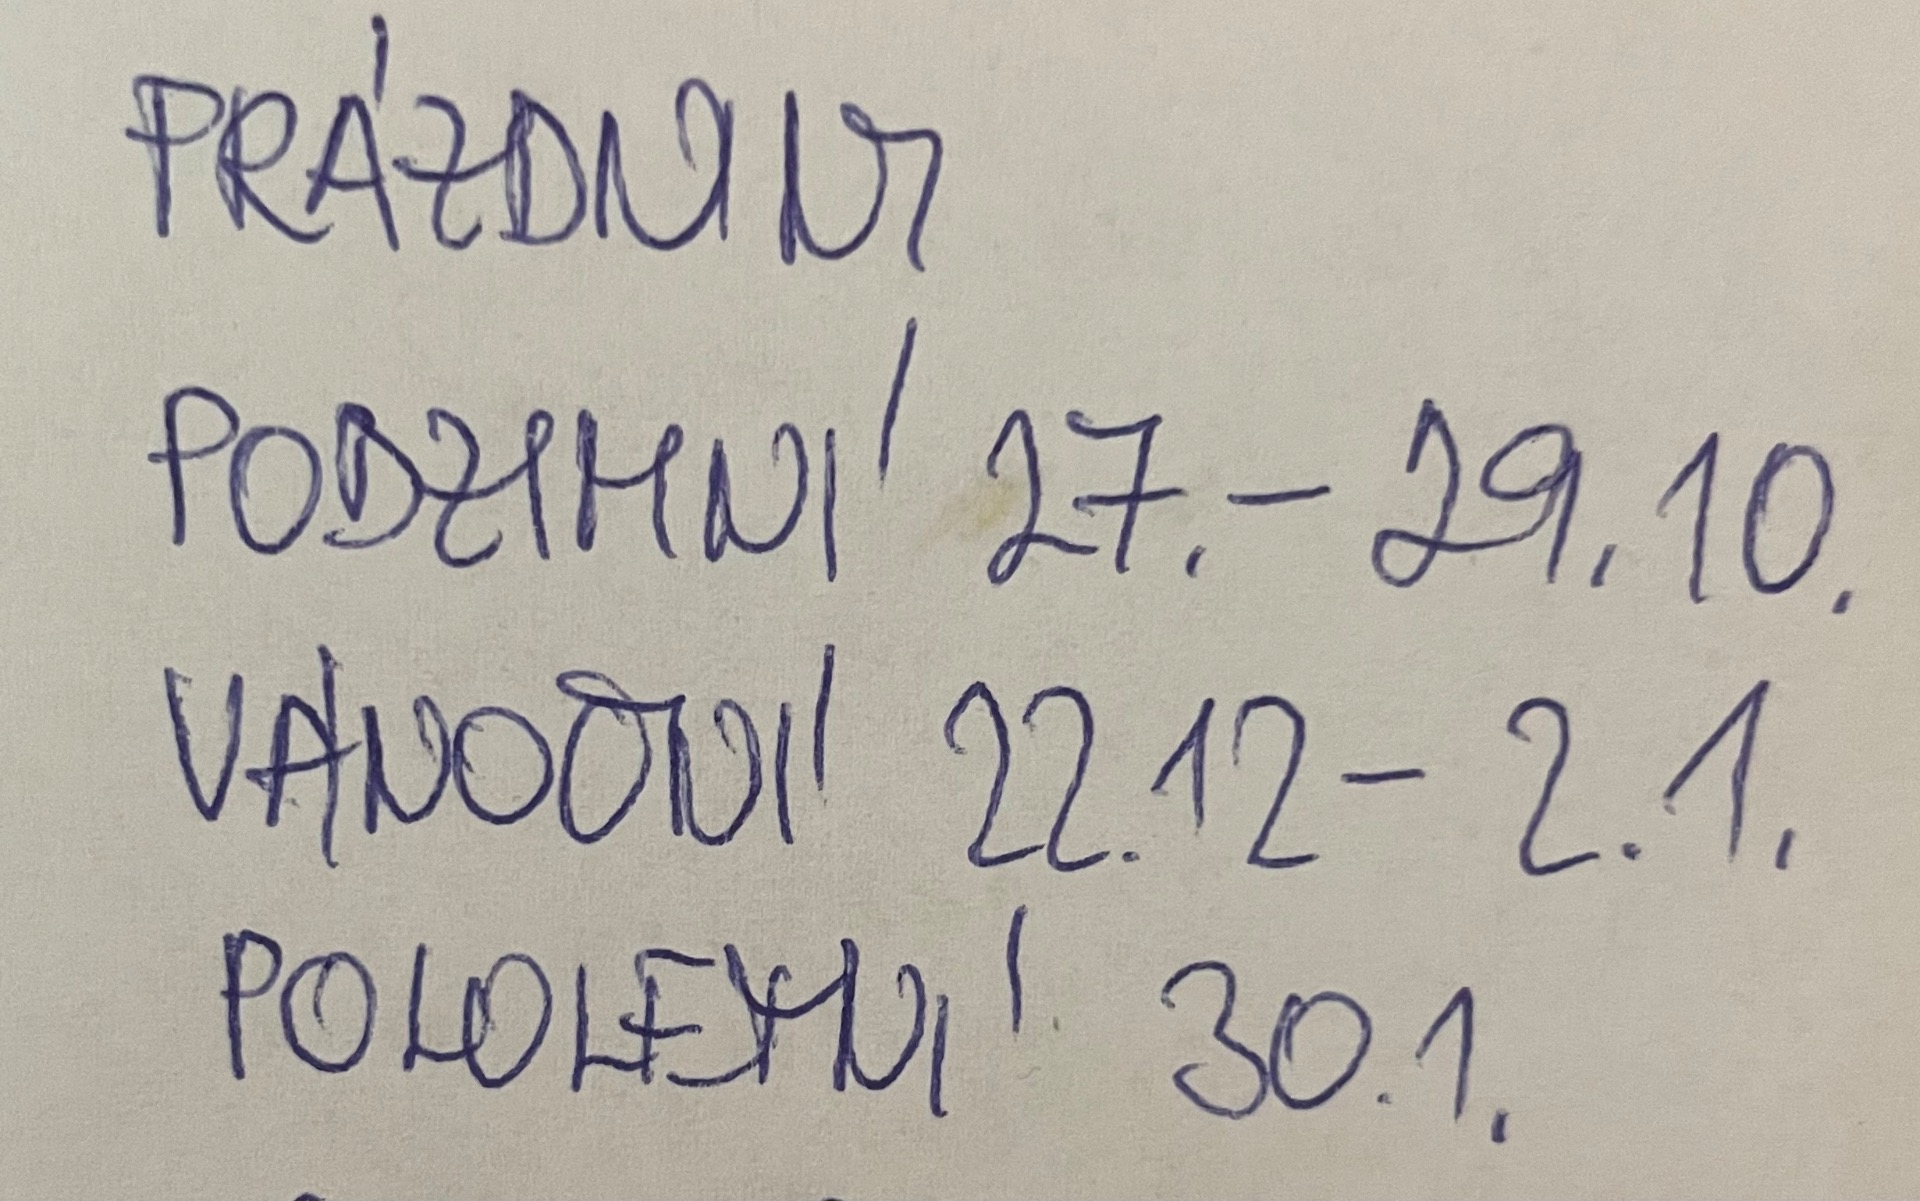 PRÁZDNINY
PODZIMNÍ 27. – 29. 10.
VÁNOČNÍ 22.12 – 2.1.
POLOLETNÍ 30.1.